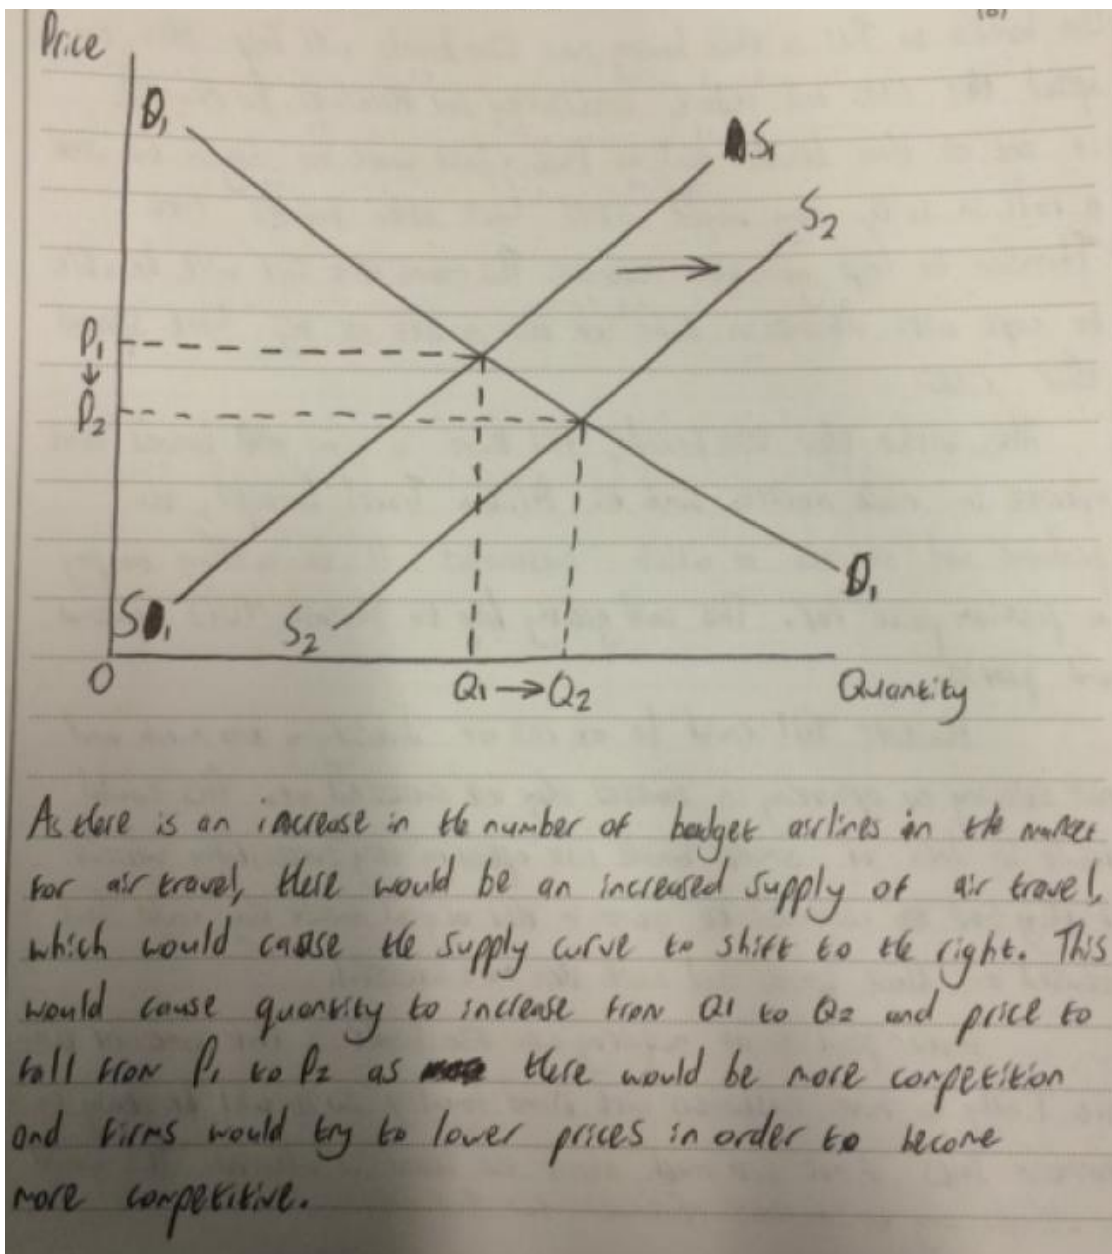 (6)
Price
D₁
S₁
S₂
P₁
P₂
S₁
S₂
D₁
O
Q₁ → Q₂
Quantity
As there is an increase in the number of budget airlines in the market
for air travel, there would be an increased supply of air travel,
which would cause the supply curve to shift to the right. This
would cause quantity to increase from Q1 to Q2 and price to
fall from P₁ to P₂ as there would be more competition
and firms would try to lower prices in order to become
more competitive.